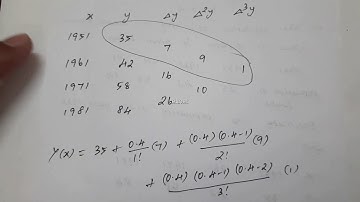 x y Δy Δ²y Δ³y
1951 35
7
1961 42 9
16 1
1971 58 10
26
1981 84
Y(x) = 35 + 0.4/1! (7) + (0.4)(0.4-1)/2! (9)
+ (0.4)(0.4-1)(0.4-2)/3! (1)